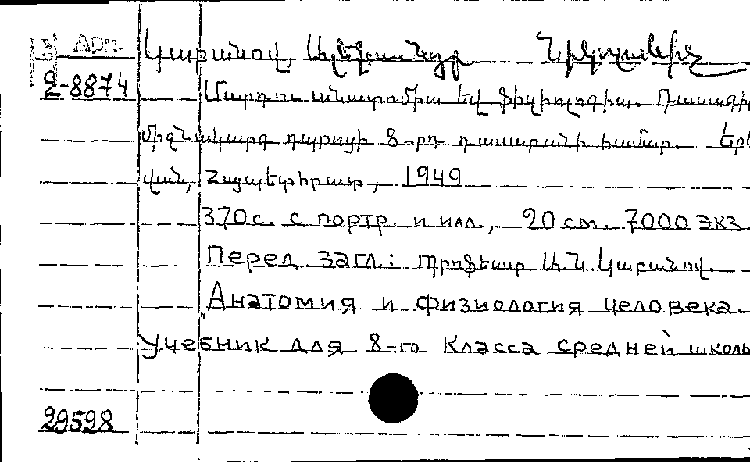 Арм. Կաբանով, Ալեքսանդր Նիկոլաևիչ
2-8874 Մարդու անատոմիա և ֆիզիոլոգիա. Դասագի
միջնակարգ դպրոցի 8-րդ դասարանի համար. Երե
վան, Հայպետհրատ, 1949
370 с. с портр. и илл., 20 см. 7000 экз
Перед загл.: Պրոֆեսոր Ա. Ն. Կաբանով.
Анатомия и физиология человека.
Учебник для 8-го класса средней школы
29598